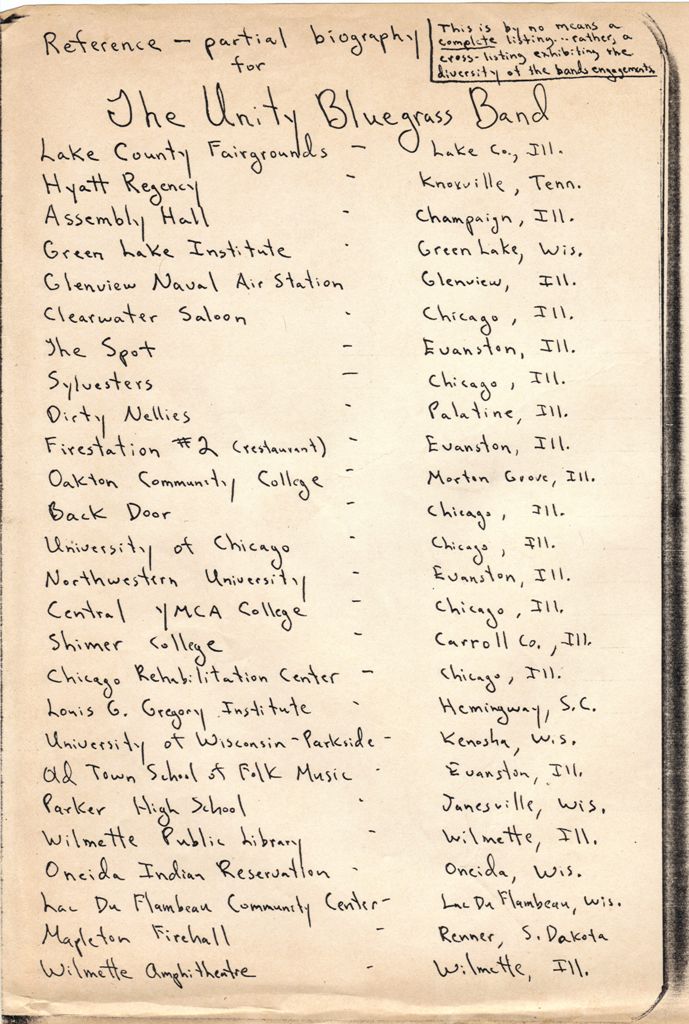 Reference – partial biography
for
This is by no means a
complete listing... rather, a
cross-listing exhibiting the
diversity of the bands engagements.
The Unity Bluegrass Band
Lake County Fairgrounds – Lake Co., Ill.
Hyatt Regency - Knoxville, Tenn.
Assembly Hall - Champaign, Ill.
Green Lake Institute - Green Lake, Wis.
Glenview Naval Air Station Glenview, Ill.
Clearwater Saloon - Chicago, Ill.
The Spot – Evanston, Ill.
Sylvesters – Chicago, Ill.
Dirty Nellies - Palatine, Ill.
Firestation #2 (restaurant) - Evanston, Ill.
Oakton Community College - Morton Grove, Ill.
Back Door - Chicago, Ill.
University of Chicago - Chicago, Ill.
Northwestern University - Evanston, Ill.
Central YMCA College - Chicago, Ill.
Shimer College - Carroll Co., Ill.
Chicago Rehabilitation Center – Chicago, Ill.
Louis G. Gregory Institute - Hemingway, S.C.
University of Wisconsin-Parkside - Kenosha, Wis.
Old Town School of Folk Music - Evanston, Ill.
Parker High School - Janesville, Wis.
Wilmette Public Library - Wilmette, Ill.
Oneida Indian Reservation - Oneida, Wis.
Lac Du Flambeau Community Center - Lac Du Flambeau, Wis.
Mapleton Firehall - Renner, S. Dakota
Wilmette Amphitheatre - Wilmette, Ill.